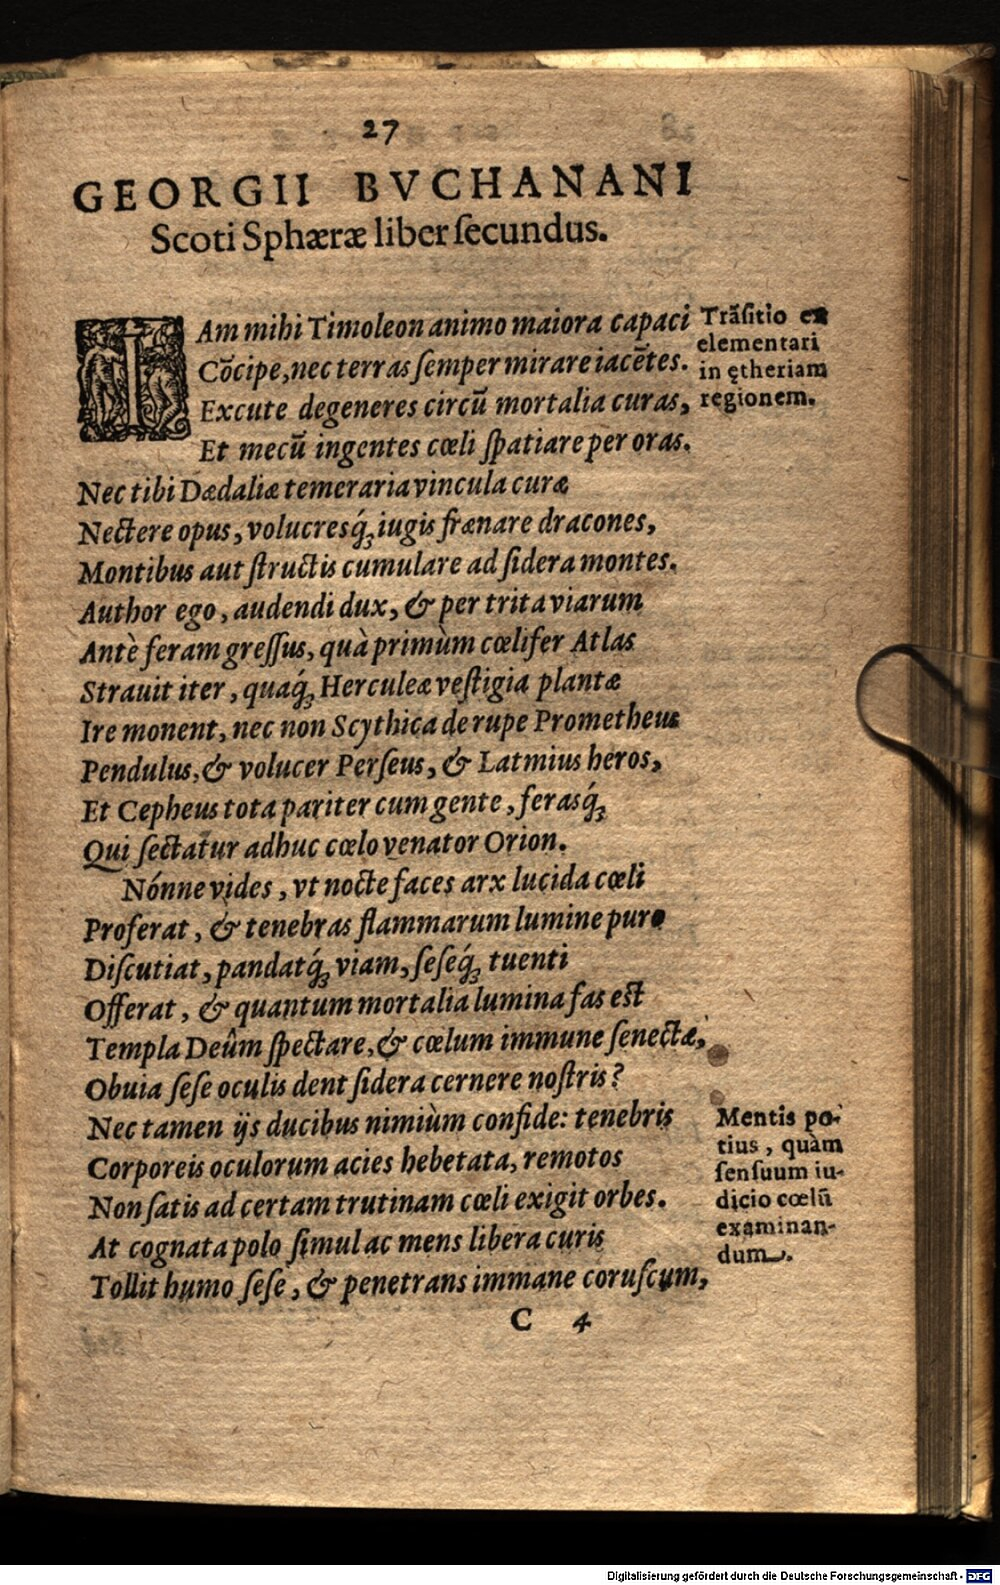 27
GEORGII BVCHANANI
Scoti Sphæræ liber ſecundus.
IAm mihi Timoleon animo maiora capaci
Cõcipe, nec terras ſemper mirare iacẽtes.
Excute degeneres circũ mortalia curas,
Et mecũ ingentes cœli ſpatiare per oras.
Nec tibi Dædaliæ temeraria vincula curæ
Nectere opus, volucresq́ꝫ iugis frænare dracones,
Montibus aut ſtructis cumulare ad ſidera montes.
Author ego, audendi dux, & per trita viarum
Antè feram greſſus, quà primùm cœlifer Atlas
Strauit iter, quaq́ꝫ Herculeæ veſtigia plantæ
Ire monent, nec non Scythica de rupe Prometheus
Pendulus, & volucer Perſeus, & Latmius heros,
Et Cepheus tota pariter cum gente, ferasq́ꝫ
Qui ſectatur adhuc cœlo venator Orion.
Nónne vides, vt nocte faces arx lucida cœli
Proferat, & tenebras flammarum lumine puro
Diſcutiat, pandatq́ꝫ viam, ſeſeq́ꝫ tuenti
Offerat, & quantum mortalia lumina fas eſt
Templa Deûm ſpectare, & cœlum immune ſenectæ,
Obuia ſeſe oculis dent ſidera cernere noſtris?
Nec tamen ijs ducibus nimiùm confide: tenebris
Corporeis oculorum acies hebetata, remotos
Non ſatis ad certam trutinam cœli exigit orbes.
At cognata polo ſimul ac mens libera curis
Tollit humo ſeſe, & penetrans immane coruſcum,
C 4
Trãſitio ex
elementari
in ętheriam
regionem.
Mentis po-
tius, quàm
ſenſuum iu-
dicio cœlũ
examinan-
dum.
Digitalisierung gefördert durch die Deutsche Forschungsgemeinschaft - DFG